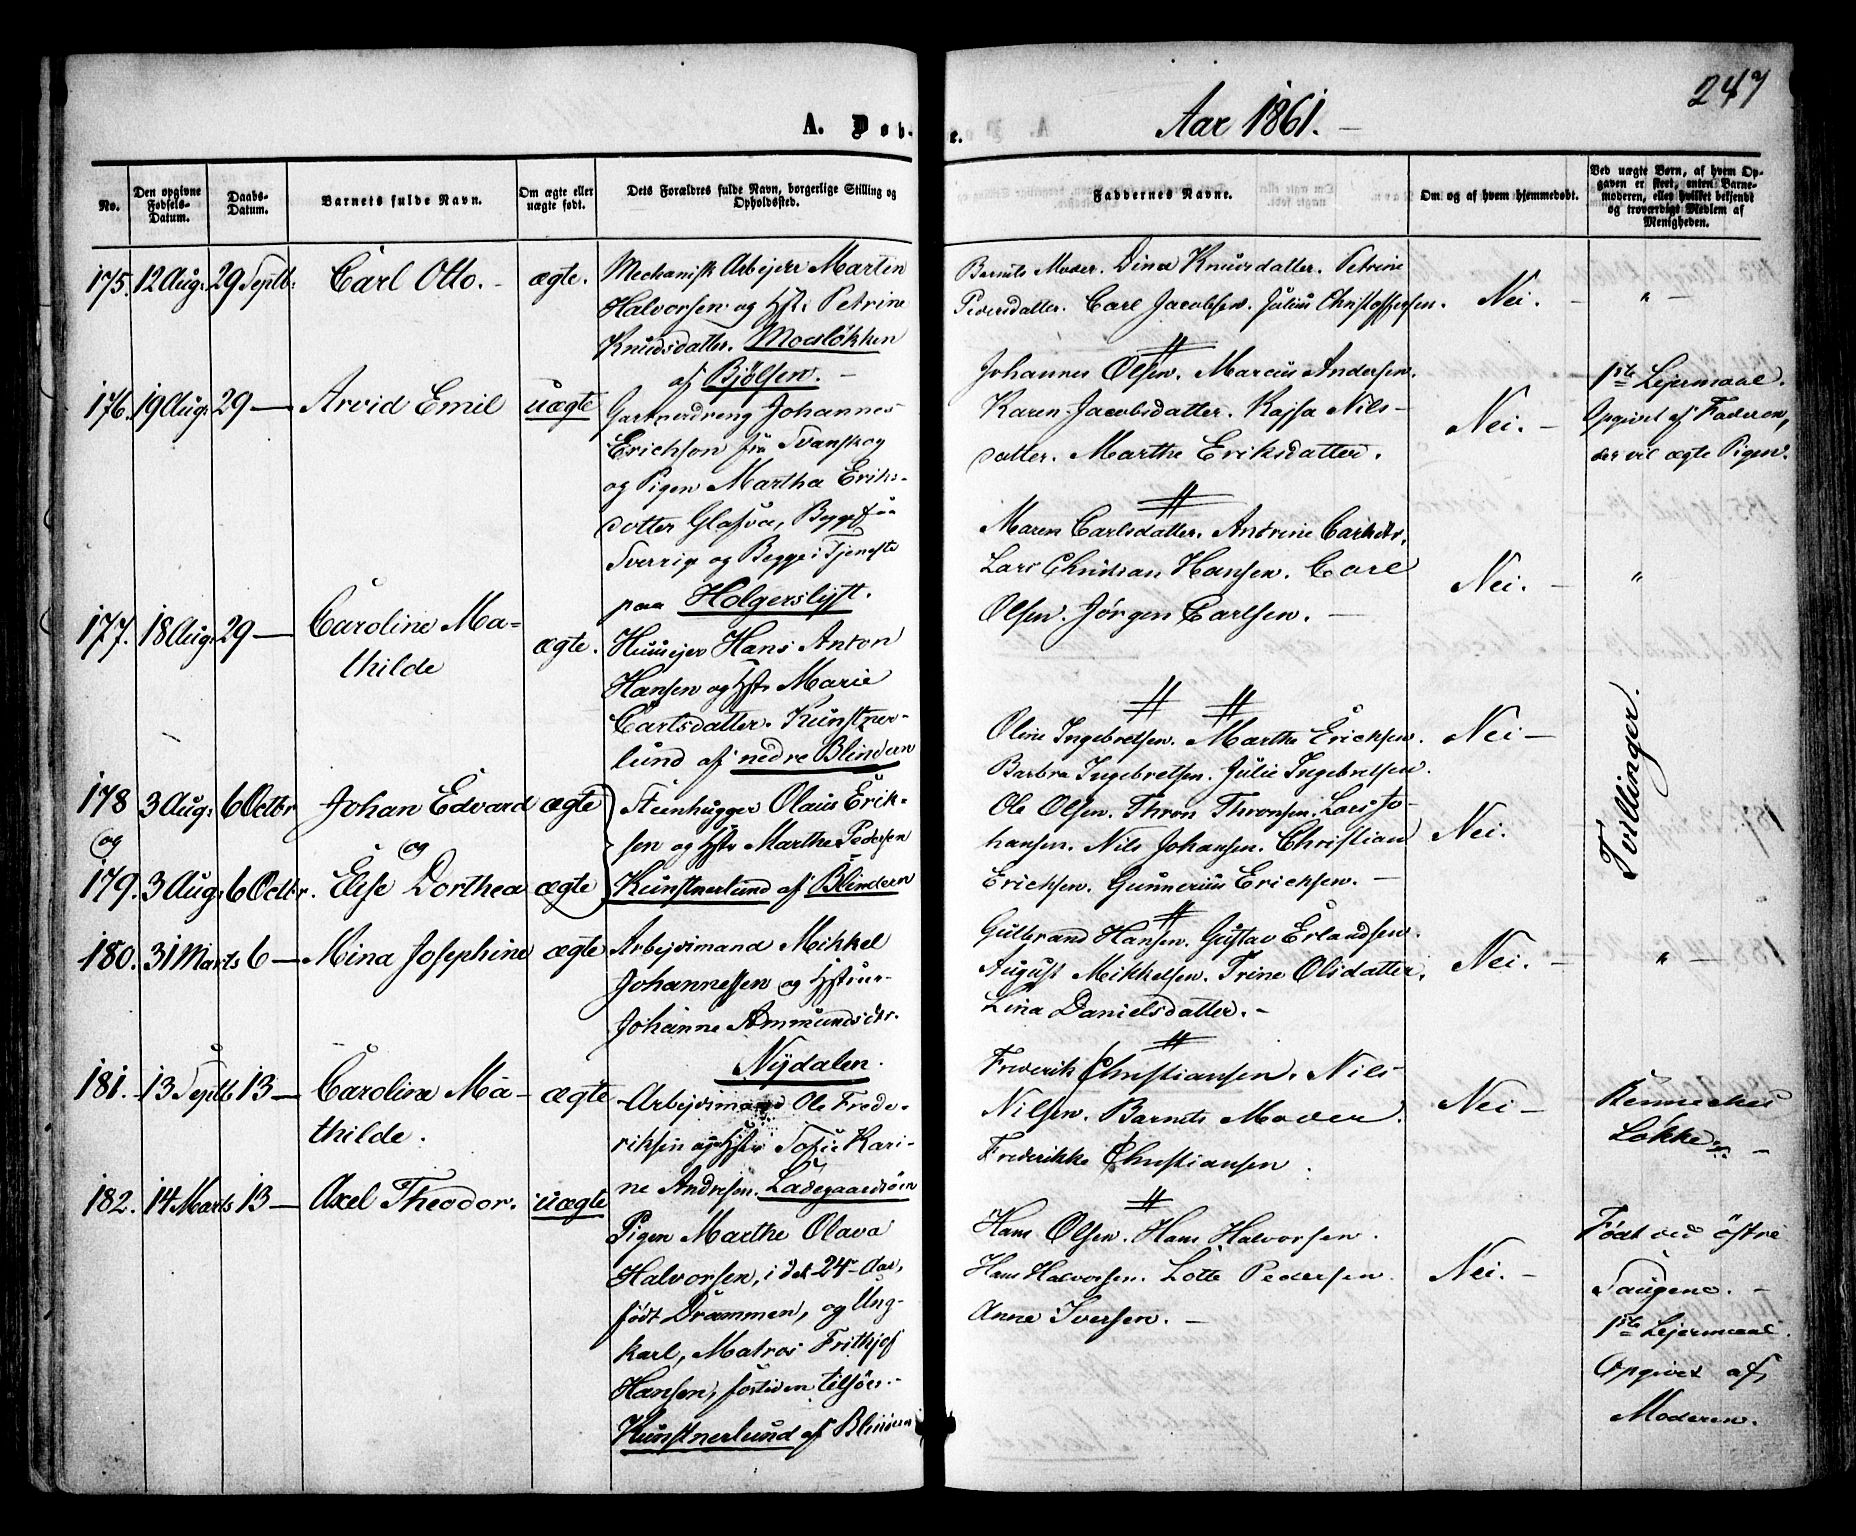 247
A. Døb-
e.
Aar 1861. -
No.
Den opgivne Fødsels-Datum.
Daabs-Datum.
Barnets fulde Navn.
Om ægte eller uægte født.
Dets Forældres fulde Navn, borgerlige Stilling og Opholdssted.
Faddernes Navne.
Om og af hvem hjemmedøbt.
Ved uægte Børn, af hvem Opgaven er skeet, enten Barnemoderen, eller hvilket bekjendt og troværdigt Medlem af Menigheden.
175. 12 Aug: 29 Septb: Carl Otto. - ægte.
Mechanisk Arbejder Martin
Halvorsen og Hst: Petrine
Knudsdatter. Modsløkken
af Bjølsen. -
Barnets Moder. Dina Knudsdatter. Petrine
Pedersdatter. Carl Jacobsen. Julius Christoffersen.
Nei. -
" -
176. 19 Aug: 29 — Arvid Emil uægte
Gartnerdreng Johannes
Erichson fra Svanskog
og Pigen Martha Eriks-
dotter Glafva, Bygge fra
Sverrig og Begge i Tjeneste
paa Holgerslyst.
Johannes Olsen. Marcus Andersen.
Karen Jacobsdatter. Kajsa Nils-
datter. Marthe Eriksdatter.
Nei. -
1ste Lejermaal.
Opgivet af Faderen,
der vil ægte Pigen.
177. 18 Aug: 29 — Caroline Ma-
thilde
ægte.
Huusejer Hans Anton
Hansen og Hst: Marie
Carlsdatter. Kunstner-
lund af nedre Blindern
Maren Carlsdatter. Andrine Carlsdtr.
Lars Christian Hansen. Carl
Olsen. Jørgen Carlsen. -
Nei. -
"
178 3 Aug: 6 Octbr Johan Edvard ægte
og
og
179. 3 Aug: 6 Octbr. Else Dorthea ægte
Steenhugger Olaus Erik-
sen og Hstr Marthe Pedersen
Kunstnerlund af Blindern
Oline Ingebretsen. Marthe Erichsen.
Barbra Ingebretsen. Julie Ingebretsen.
Ole Olsen. Thron Thronsen. Lars Jo-
hansen. Nils Johansen. Christian
Erichsen. Gunnerius Erichsen. -
Nei -
Nei.
Tvillinger.
180. 31 Marts 6 — Mina Josephine ægte
Arbejdsmand Mikkel
Johannessen og Hstrue
Johanne Ammundsdtr.
Nydalen.
Gulbrand Hansen. Gustav Erlandsen.
August Mikkelsen. Trine Olsdatter.
Lina Danielsdatter. -
Nei. -
" -
181. 13 Septb 13 — Caroline Ma-
thilde.
ægte
Arbejdsmand Ole Frede-
riksen og Hstr Sofie Kari-
ne Andresen. Ladegaardsøen
Frederik Christiansen. Nils
Nilsen. Barnets Moder.
Frederikke Christiansen.
Nei -
Løkke. -
182. 14 Marts 13 — Axel Theodor. uægte
Pigen Marthe Olava
Halvorsen, i det 24 Aar,
født Drammen, og Ung-
karl, Matros Frithjof
Hansen, fortiden tilsøes. -
Kunstnerlund af Blindern
Hans Olsen. Hans Halvorsen.
Hans Halvorsen. Lotte Pedersen.
Anne Iversen. -
Nei. -
Født ved østre
Taugene. -
1ste Lejermaal.
Opgivet af
Moderen.